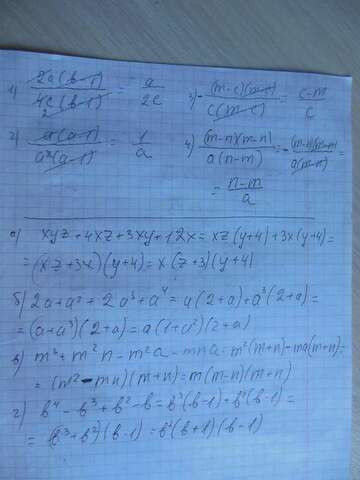 1) 2a(в-1)/4c(в-1) = a/2c 3) -(m-c)(m-c)/c(m-c) = c-m/c
2) a(a-1)/a³(a-1) = 1/a 4) (m-n)(m-n)/a(n-m) = -(m-n)(m-n)/a(m-n) =
= n-m/a
а) xyz+4xz+3xy+12x = xz(y+4)+3x(y+4)=
= (xz+3x)(y+4) = x(z+3)(y+4)
б) 2a+a²+2a³+a⁴ = a(2+a)+a³(2+a)=
= (a+a³)(2+a) = a(1+a²)(2+a)
в) m³+m²n-m²a-mna = m²(m+n)-ma(m+n)=
= (m²-mn)(m+n) = m(m-n)(m+n)
г) в⁴-в³+в²-в = в³(в-1)+в²(в-1)=
= (в³+в²)(в-1) = в²(в+1)(в-1)